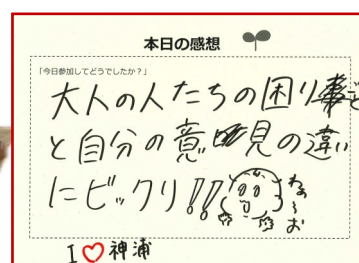 本日の感想
「今日参加してどうでしたか？」
大人の人たちの困り事
と自分の意見の違い
にビックリ!!
わぁ〜お
I ♡ 神浦